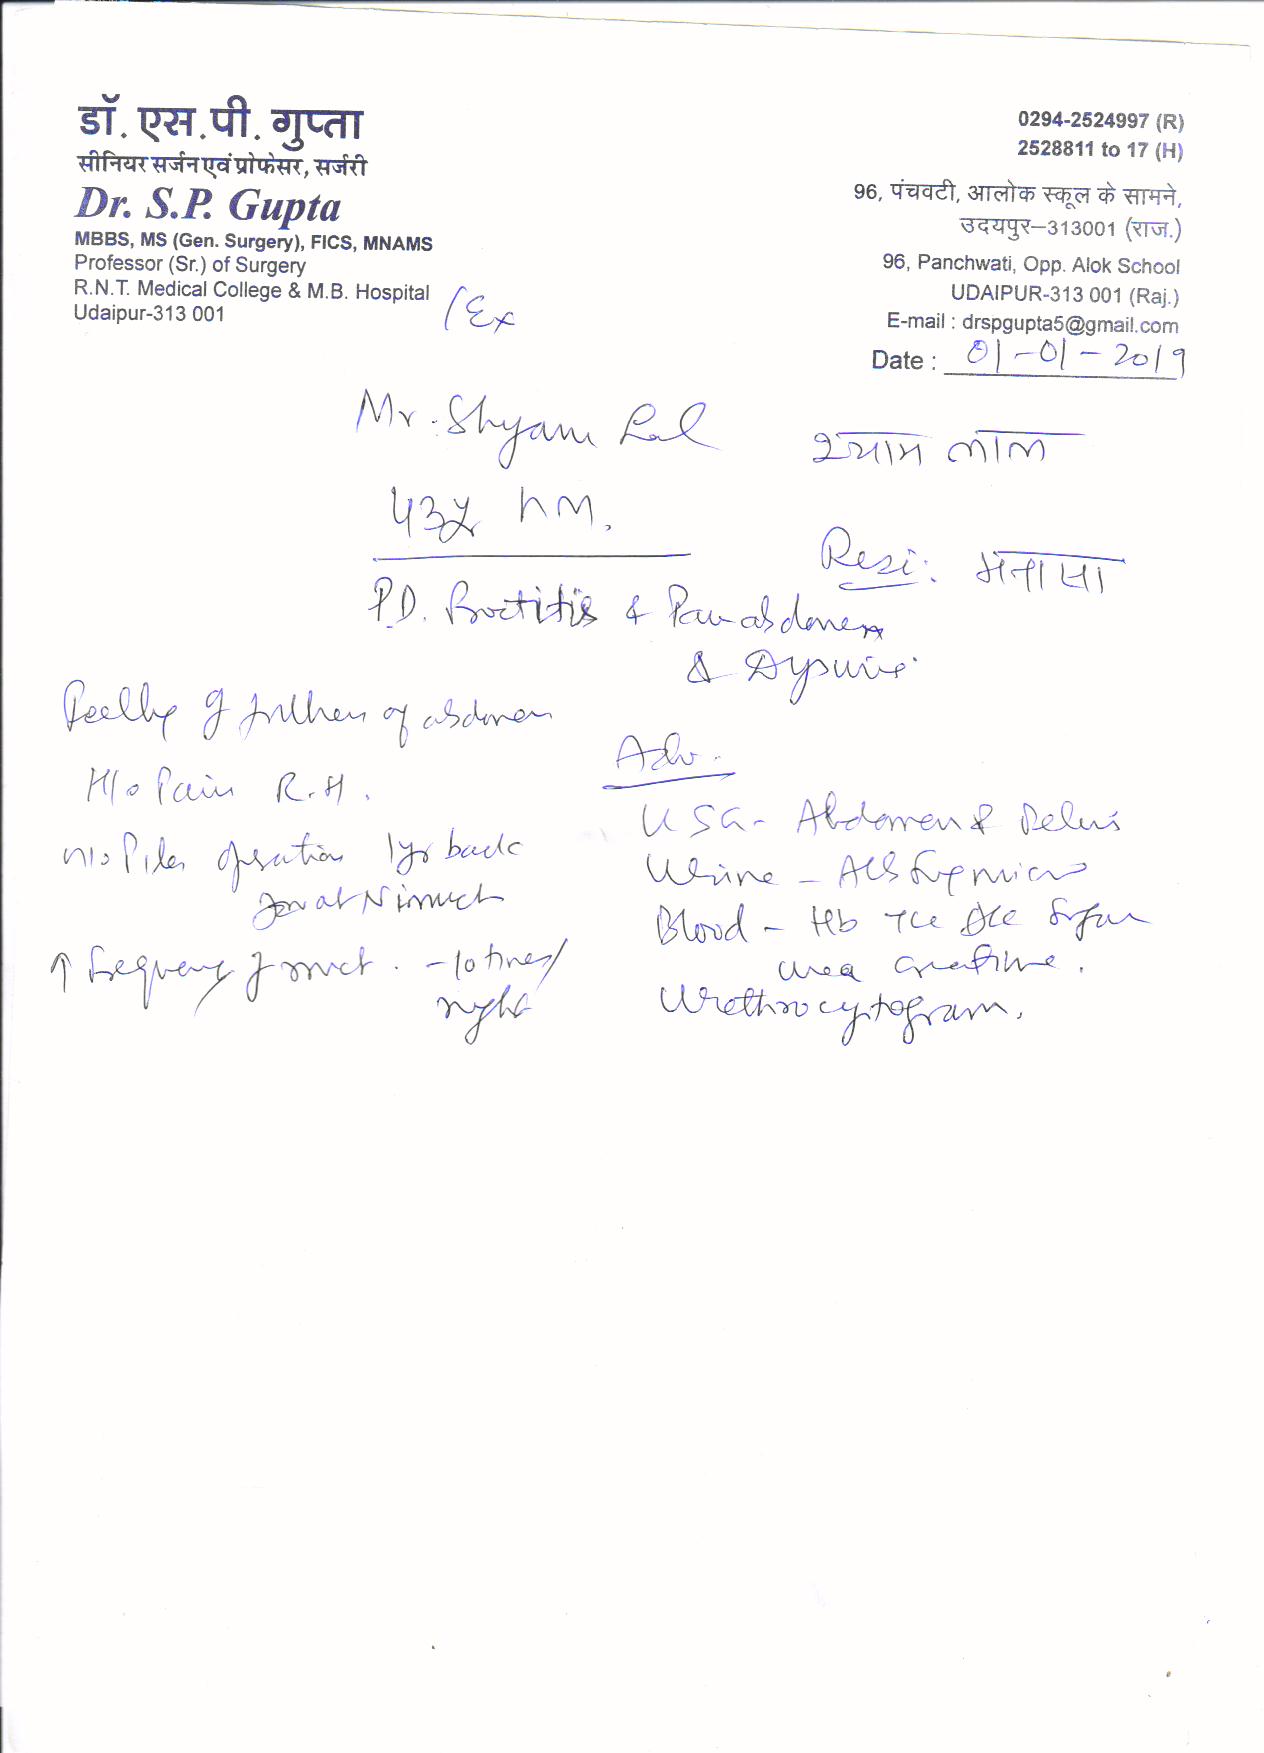 डॉ. एस.पी. गुप्ता
सीनियर सर्जन एवं प्रोफेसर, सर्जरी
Dr. S.P. Gupta
MBBS, MS (Gen. Surgery), FICS, MNAMS
Professor (Sr.) of Surgery
R.N.T. Medical College & M.B. Hospital
Udaipur-313 001
/Ex
0294-2524997 (R)
2528811 to 17 (H)
96, पंचवटी, आलोक स्कूल के सामने,
उदयपुर–313001 (राज.)
96, Panchwati, Opp. Alok School
UDAIPUR-313 001 (Raj.)
E-mail : drspgupta5@gmail.com
Date : 01-01-2019
Mr. Shyam Lal
श्याम लाल
Resi: मनासा
P.D. Proctitis & Pain abdomen
& Dysuria
of fullness of abdomen
H/o Pain R.H.
H/o Piles operation 1yr back
at Nimuch
↑ frequency of mict. - 10 times/
night
Adv.
USG - Abdomen & Pelvis
Urine - Alb Sug micro
Blood - Hb TLC DLC Sugar
urea creatinine.
Urethrocystogram.